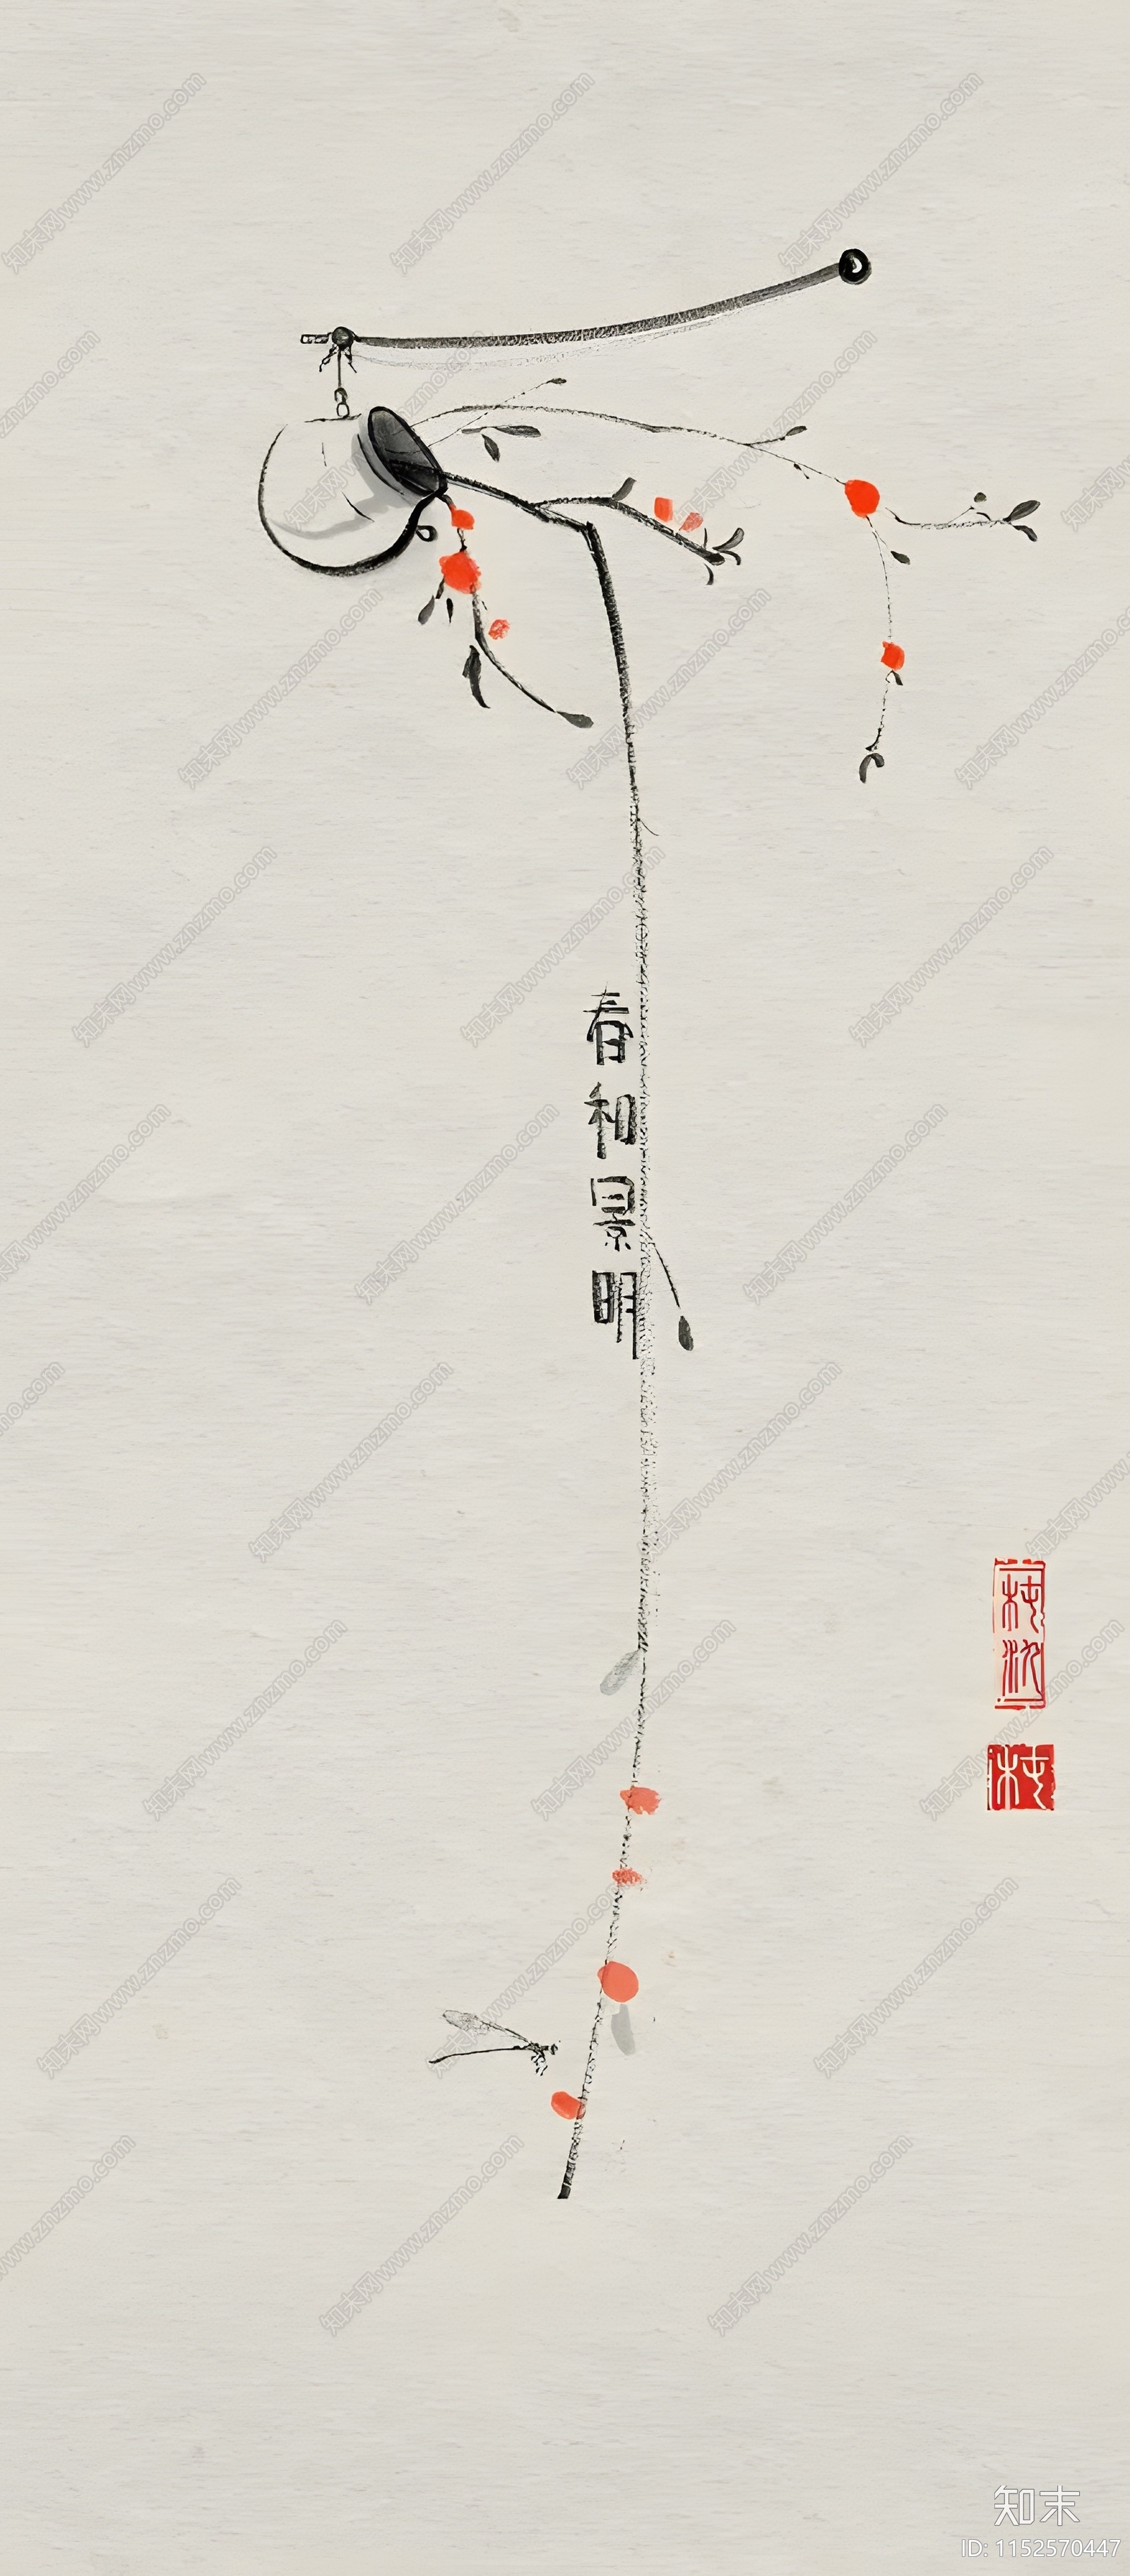 春和景明
知末
ID: 1152570447
知末网www.znzmo.com